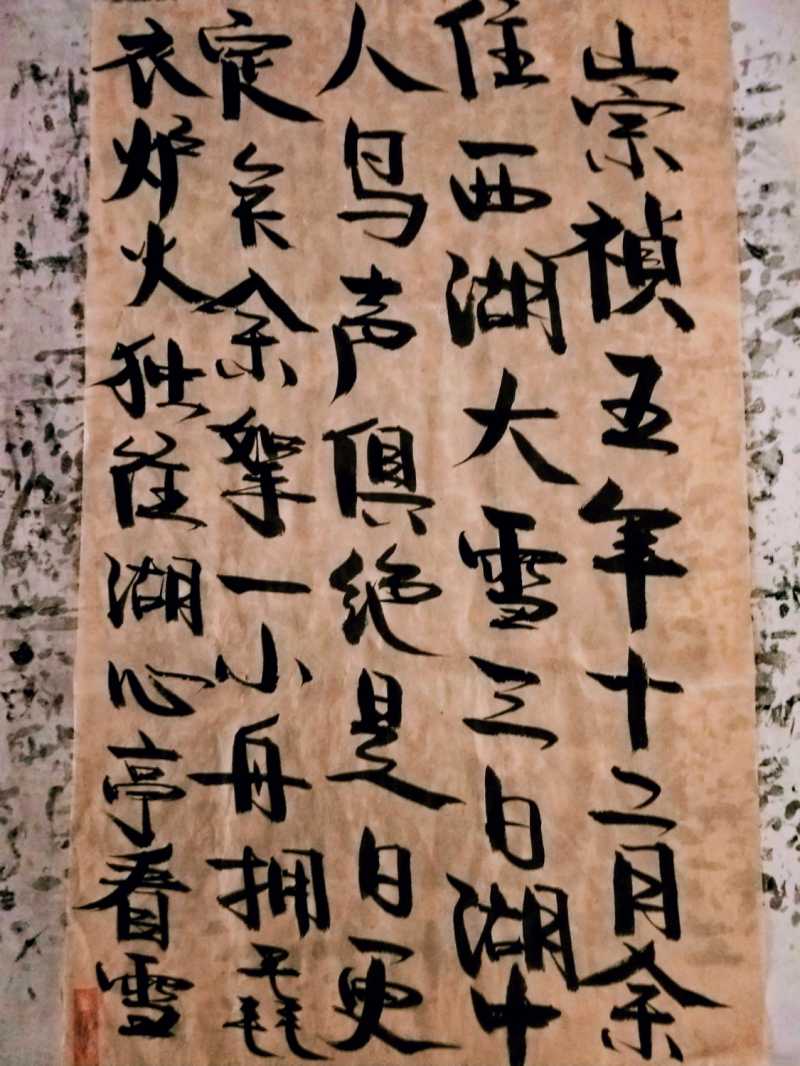 崇祯五年十二月余
住西湖大雪三日湖中
人鸟声俱绝是日更
定矣余拏一小舟拥毳
衣炉火独往湖心亭看雪